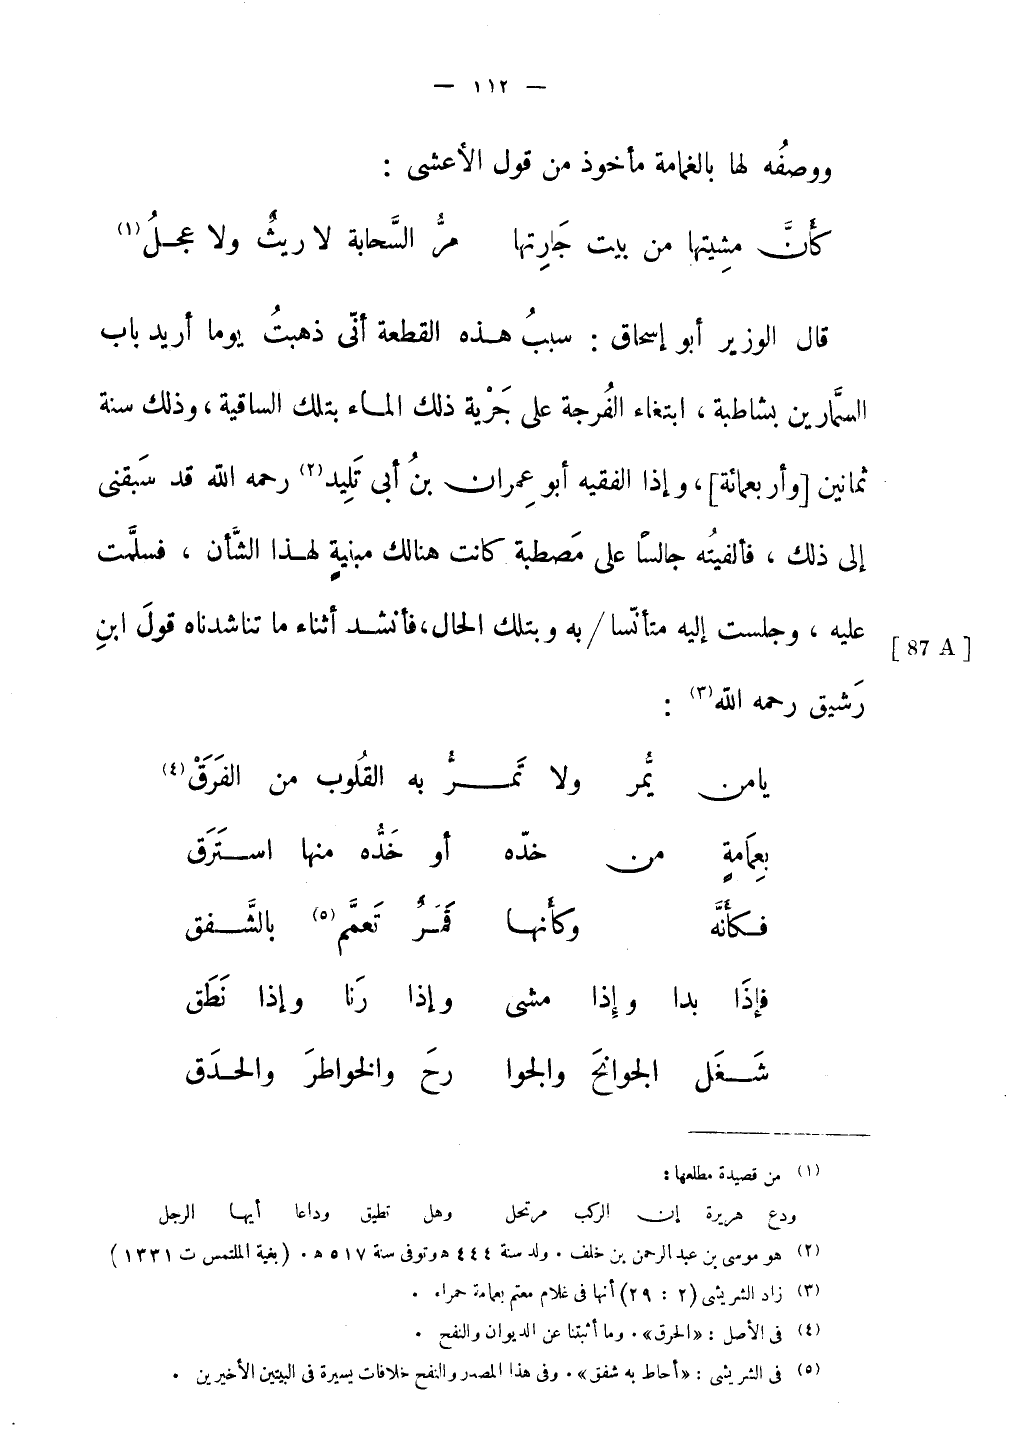 — ١١٢ —
ووصفُه لها بالغمامة مأخوذ من قول الأعشى :
كأَنَّ مشِيتها من بيت جَارِتها مرُّ السَّحابة لا ريثٌ ولا عجلُ (١)
قال الوزير أبو إسحاق : سببُ هذه القطعة أنّى ذهبتُ يوما أريد باب
السمَّارين بشاطبة ، ابتغاء الفُرجة على جَرْية ذلك الماء بتلك الساقية ، وذلك سنة
ثمانين [وأربعمائة]، وإذا الفقيه أبو عِمران بنُ أبى تَلِيد (٢) رحمه الله قد سَبقنى
إلى ذلك ، فألفيتُه جالسًا على مَصطبة كانت هنالك مبنيةٍ لهذا الشَّأن ، فسلَّمت
عليه ، وجلست إليه متأنّسا / به وبتلك الحال، فأنشد أثناء ما تناشدناه قولَ ابنِ
[ 87 A ]
رَشيق رحمه الله (٣) :
يامن يُّمر ولا تَمرُّ به القُلوب من الفَرَقْ (٤)
بعِمَامةٍ من خدّه أو خَدُّه منها استَرَق
فكأَنَّه وكأَنها قمَرٌ تَعمَّم (٥) بالشَّفق
فإذَا بدا وإِذا مشى وإذا رَنا وإذا نَطَق
شَغَل الجوانحَ والجوا رحَ والخواطرَ والحدَق
(١) من قصيدة مطلعها :
ودع هريرة إن الركب مرتحل وهل تطيق وداعا أيها الرجل
(٢) هو موسى بن عبد الرحمن بن خلف . ولد سنة ٤٤٤ ه وتوفى سنة ٥١٧ ه . (بغية الملتمس ت ١٣٣١ )
(٣) زاد الشريشى (٢ : ٢٩) أنها فى غلام معتم بعمامة حمراء .
(٤) فى الأصل : «الحرق» . وما أثبتنا عن الديوان والنفح .
(٥) فى الشريشى : «أحاط به شفق» . وفى هذا المصدر والنفح خلافات يسيرة فى البيتين الأخيرين .